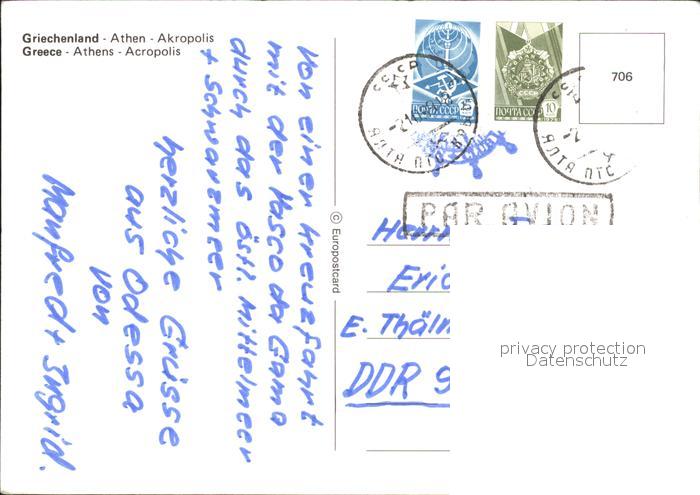 Griechenland - Athen - Akropolis
Greece - Athens - Acropolis
von einer Kreuzfahrt
mit der Vasco da Gama
durch das östl. Mittelmeer
+ Schwarzmeer
herzliche Grüsse
aus Odessa
von
Manfred + Ingrid.
© Europostcard
ПОЧТА СССР
ПОЧТА СССР 10
706
СССР
ЯЛТА ПТС
ЯЛТА ПТС
PAR AVION
Herrn
Eric
E. Thälm
DDR 9
privacy protection
Datenschutz